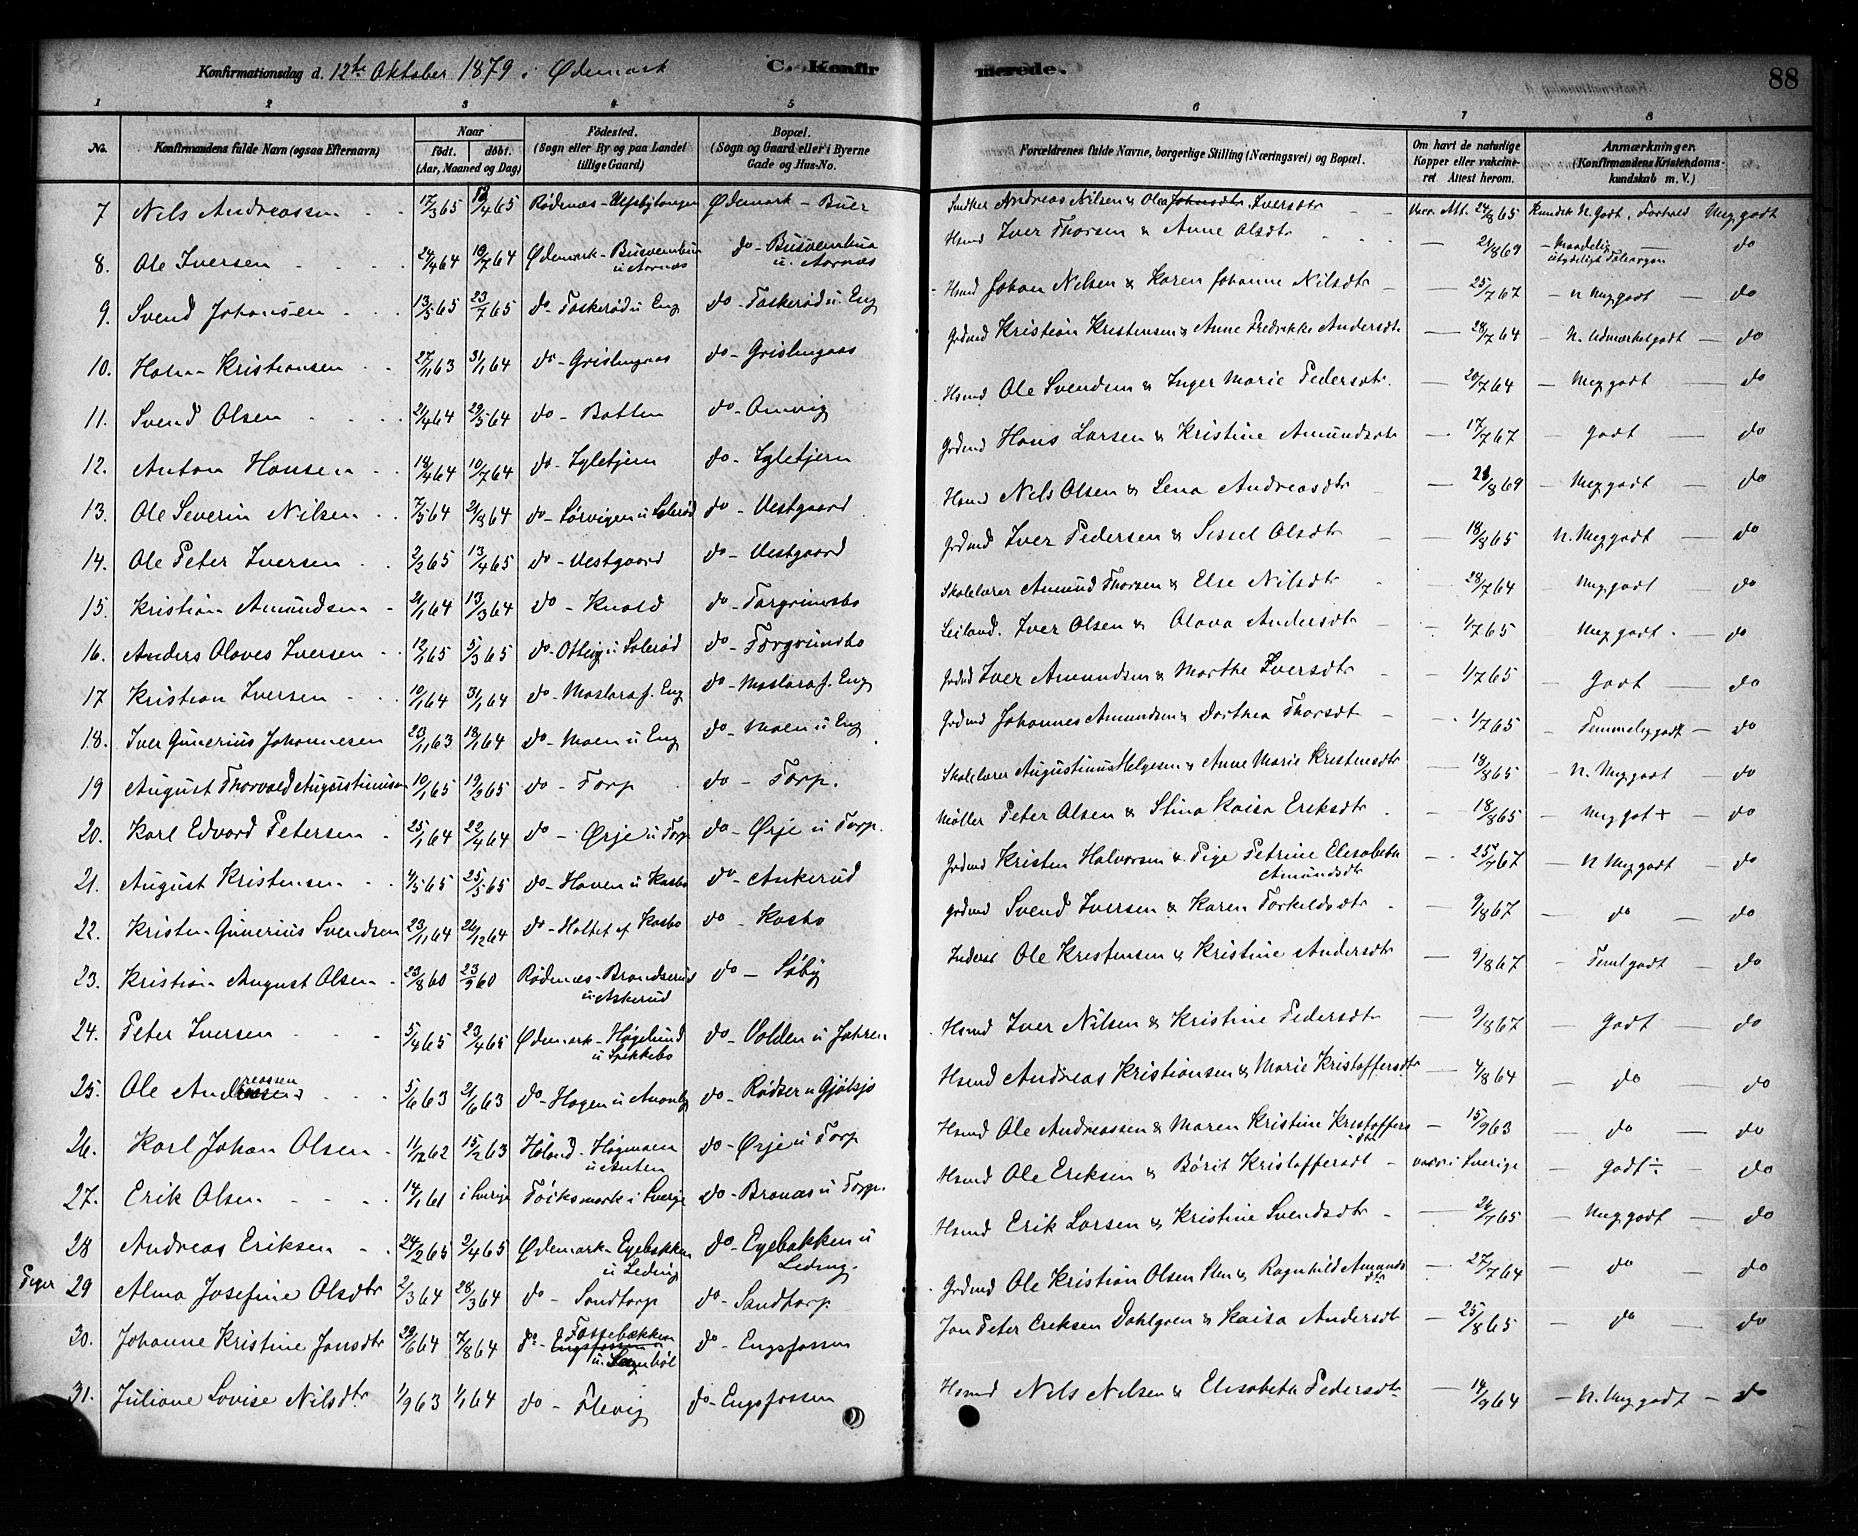 Konfirmationsdag d. 12te Oktober 1879 i Ødemark C. Konfirmerede. 88
1 2 3 4 5 6 7 8
No. Konfirmandens fulde Navn (ogsaa Efternavn) Naar født. døbt. (Aar, Maaned og Dag) Födested. (Sogn eller By og paa Landet tillige Gaard) Bopæl. (Sogn og Gaard eller i Byerne Gade og Hus-No. Forældrenes fulde Navne, borgerlige Stilling (Næringsvei) og Bopæl. Om havt de naturlige Kopper eller vakcineret. Attest herom. Anmærkninger. (Konfirmandens Kristendomskundskab m. V.)
7 Nils Andreassen 17/3 65 /4 65 Rødenæs - Ødemark - Buer Andreas Nilsen & Olea Johnsdtr Iversdtr Vacc. Att. 24/8 65 Kundsk. N. Godt. Forhold Meg godt
8. Ole Iversen 24/4 64 10/7 64 Ødemark - Busvembua u Aarnæs do - Busvembua u. Aarnæs Hsmd Iver Thorsen & Anne Olsdtr - 21/8 69 - Maadelig - do
9. Svend Johansen 13/5 65 23/7 65 do - Taskerød u Eng do - Taskerød u Eng Hsmd Johan Nilsen & Karen Johanne Nilsdtr - 25/7 67 - N Meg godt - do
10. Halvor Kristiansen 27/11 63 31/1 64 do - Grislingaas do - Grislingaas Grdmd Kristian Kristensen & Anne Fredrikke Andersdtr - 28/7 64 - N. Udmærketgodt - do
11. Svend Olsen 2/4 64 29/5 64 do - Botten do - Hsmd Ole Svendsen & Inger Marie Pedersdtr. - 20/7 64 - Meg godt - do
12. Anton Hansen 18/4 64 10/7 64 do - Igletjern do - Igletjern Grdmd Hans Larsen & Kristine Amundsdtr - 17/7 67 - Godt - do
13. Ole Severin Nilsen 7/5 64 21/8 64 do - Sørvigen u Solerød do - Vestgaard Hsmd Nils Olsen & Lena Andreasdtr - 21/8 69 - Meg godt - do
14. Ole Peter Iversen 2/2 65 13/4 65 do - Vestgaard do - Vestgaard Grdmd Iver Pedersen & Sissel Olsdtr - 18/8 65 N. Meg godt - do
15. Kristian Amundsen 21/1 64 13/3 64 do - Knold do - Torgrimsbo Skolelærer Amund Thorsen & Else Nilsdtr - 28/7 64 Meg godt do
16. Anders Olaves Iversen 12/1 65 5/3 65 do - Otteig u Solerød do - Torgrimsbo Leiland. Iver Olsen & Olava Andersdtr - 1/7 65 Meg godt. do
17 Kristian Iversen 10/1 64 31/1 64 do - Moslaraf. Eng do - Moslaraf. Eng Grdmd Iver Amundsen & Marthe Iversdtr - 1/7 65 - Godt - do
18. Iver Gunerius Johannesen 23/11 63 18/1 64 do - Moen u Eng do - Moen u Eng Grdmd Johannes Amundsen & Dorthea Thorsdt - 1/7 65 - Temmelig godt - do
19 August Thorvald Augustinusen 10/1 65 19/2 65 do - Torp do - Torp. Skolelærer Augustinus Helgesen & Anne Marie Kristensdtr - 18/8 65 - N. Meg godt - do
20. Karl Edvard Petersen 25/1 64 22/4 64 do - Ørje u Torp do - Ørje u Torp. Møller Peter Olsen & Stina Kaisa Eriksdtr - 18/8 65 - Meg got + - do
21. August Kristensen 4/5 65 25/5 65 do - Haven u Kasbo do - Ankerud Grdmd Kristen Halvorsen & Pige Petrine Elisabeth Amundsdtr - 25/7 67 - N Meg godt - do
22. Kristen Gunerius Svendsen 23/11 64 26/12 64 do - Holtet af Kasbo do - Kasbo Grdmd Svend Iversen & Karen Torkildsdtr - 9/8 67 - do - do
23. Kristian August Olsen 23/8 60 23/9 60 Rødenæs - Brandserud u Askerud do - Søby Inderst Ole Kristensen & Kristine Andersdtr - 9/8 67 - Teml godt - do
24. Peter Iversen 5/4 65 23/4 65 Ødemark - Høgelund u Spikkebo do - Volden u Jahren Hsmd Iver Nilsen & Kristine Pedersdtr - 9/8 67 - Godt - do
25. Ole Andreassen 5/6 63 21/6 63 do - Hagen u do - Rødser u Gjølsjø Hsmd Andreas Kristiansen & Marie Kristoffersdtr - 4/8 64 - do do
26. Karl Johan Olsen 11/12 62 15/2 63 Høland - do - Ørje u Torp Hsmd Ole Andreassen & Maren Kristine Kristoffersdtr - 15/9 63 - do - do
27. Erik Olsen 14/1 61 i Sverige Töcksmark i Sverige do - Bronæs u Torp. Hsmd Ole Eriksen & Börit Kristoffersdt - vacc i Sverige - Godt ÷ - do
28 Andreas Eriksen 24/2 65 2/4 65 Ødemark - Egebakken u Leding do - Egebakken u Leding. Hsmd Erik Larsen & Kristine Svendsdtr - 26/7 65 - Meg godt - do
Piger 29 Alma Josefine Olsdtr 2/3 64 28/3 64 do - Sandtorp do - Sandtorp Grdmd Ole Kristian Olsen & Ragnhild Amundsdtr - 27/7 64 - do - do
30. Johanne Kristine Jonsdtr 29/6 64 7/8 64 do - Fossebækken Engsfossen u. do - Engsfossen Jon Peter Eriksen Dahlgren & Kaisa Andersdt - 25/8 65 - do - do
31. Juliane Lovise Nilsdtr 1/9 63 1/1 64 do - Flevig do - Engsfossen Hsmd Nils Nilsen & Elisabeth Pedersdtr - 14/9 64 - N. Meg godt - do